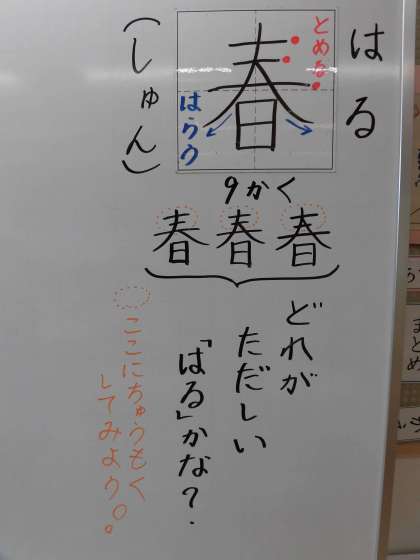 はる
とめる
春
はらう
(しゅん)
9かく
春 春 春
どれが
ただしい
「はる」かな?
ここにちゅうもく
してみよう。
まとめ